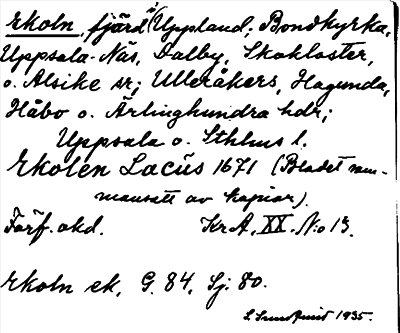 Ekoln, fjärd i Uppland, Bondkyrka,
Uppsala-Näs, Dalby, Skokloster,
o. Alsike sr; Ulleråkers, Hagunda,
Håbo o. Ärlinghundra hdr;
Uppsala o. Sthlms l.
Ekolen Lacus 1671 (Bladet sam-
mansatt av kopior).
Förf. okd. KrA. XX. No 13.
Ekoln ek, G. 84, Sj. 80.
S. Sundquist 1935.